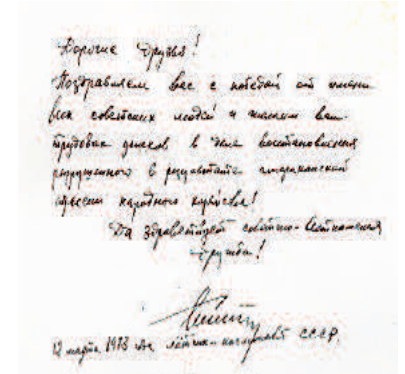 Дорогие друзья!
Поздравляем вас с победой от имени
всех советских людей и желаем вам
трудовых успехов в деле восстановления
разрушенного в результате американской
агрессии народного хозяйства!
Да здравствует советско-вьетнамская
дружба!
12 марта 1973 лётчик-космонавт СССР.